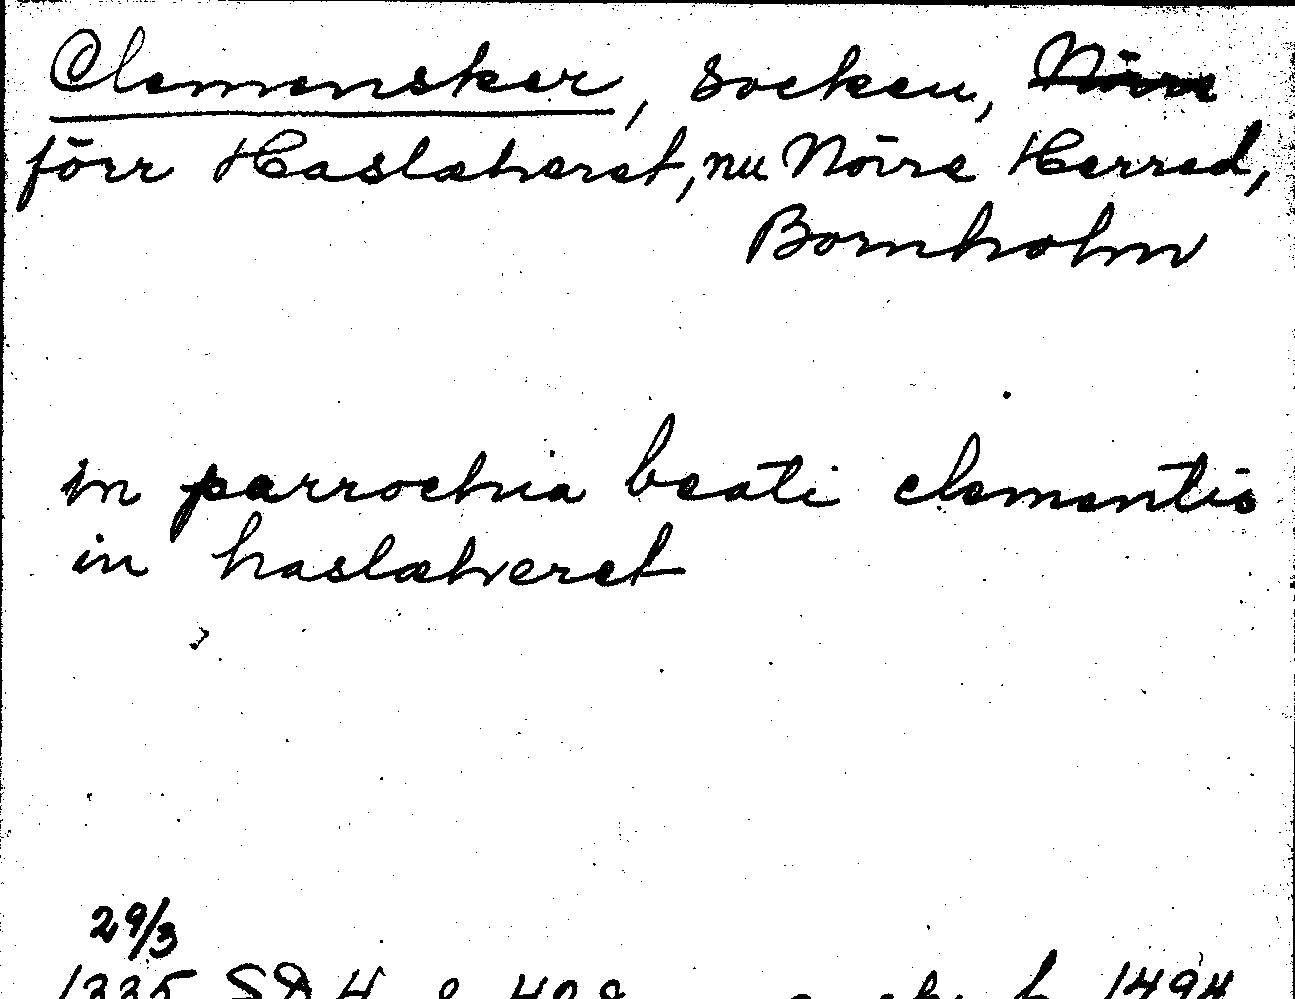 Clemensker, socken, Nörre
förr Haslæhæret, nu Nörre Herred,
Bornholm
in parrochia beati clementis
in haslæhæret
29/3
1335 SD 4 s 408 1494